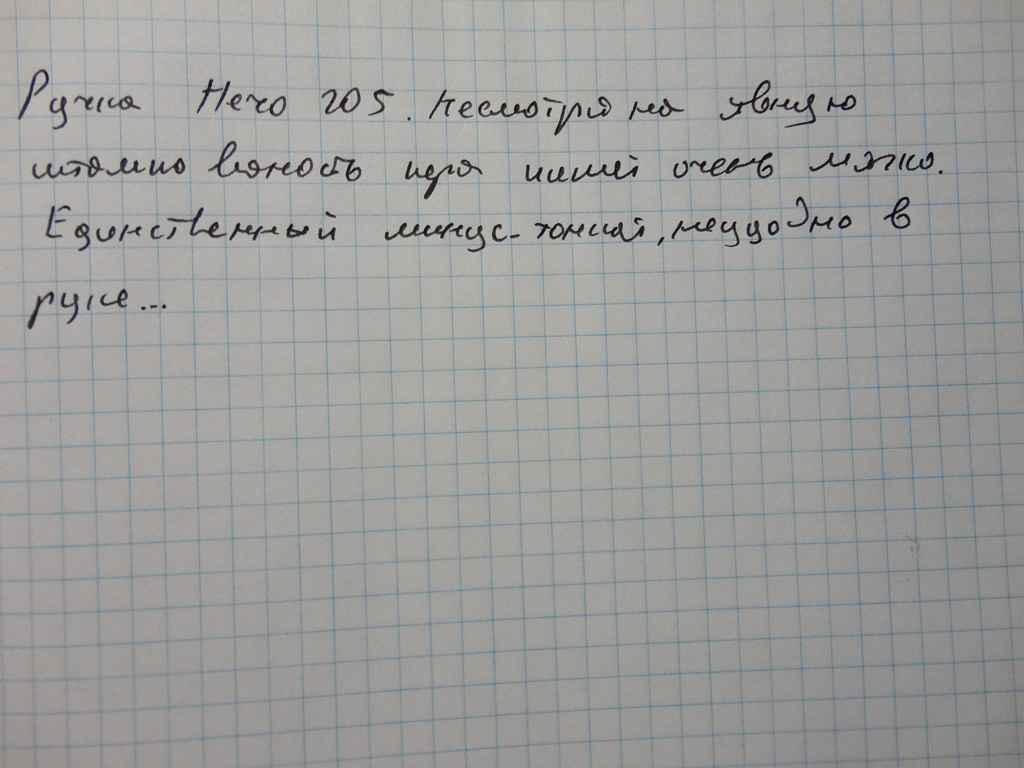 Ручка Hero 205. Несмотря на явную
штампованость пера пишет очень мягко.
Единственный минус - тонкая, неудобно в
руке...